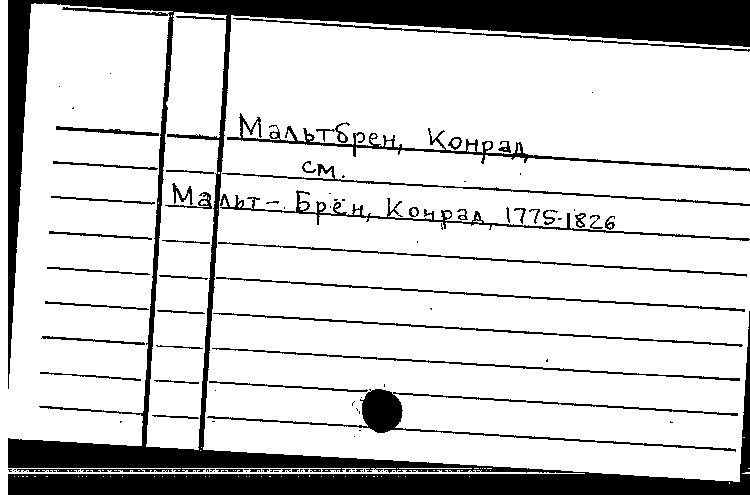 Мальтбрен, Конрад
см.
Мальт-Брён, Конрад, 1775-1826